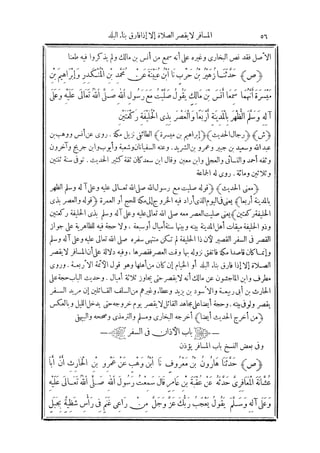 ٥٦ المسافر لا يقصر الصلاة إلا إذا فارق بناء البلد
الأصل فقد نص البخاري وغيره على أنه سمع من أنس بن مالك ولم يذكروا فيه طعنا
﴿ص﴾ حَدَّثَنَا زُهَيْرُ بْنُ حَرْبٍ نَا ابْنُ عُيَيْنَةَ عَنْ مُحَمَّدِ بْنِ الْمُنْكَدِرِ وَإِبْرَاهِيمَ بْنِ
مَيْسَرَةَ أَنَّهُمَا سَمِعَا أَنَسَ بْنَ مَالِكٍ يَقُولُ صَلَّيْتُ مَعَ رَسُولِ اللهِ صَلَّى اللهُ تَعَالَى عَلَيْهِ وَعَلَى
آلِهِ وَسَلَّمَ الظُّهْرَ بِالْمَدِينَةِ أَرْبَعًا وَالْعَصْرَ بِذِي الْحُلَيْفَةِ رَكْعَتَيْنِ
﴿ش﴾ ﴿رجال الحديث﴾ ﴿إبراهيم بن ميسرة﴾ الطائفي نزيل مكة. روى عن أنس ووهب بن
عبد الله وسعيد بن جبير وعمرو بن الشريد. وعنه السفيانان وشعبة وأيوب وابن جريج وآخرون
وثقه أحمد والنسائي والعجلي وابن معين وقال ابن سعد كان ثقة كثير الحديث. توفي سنة ثنتين
وثلاثين ومائة. روى له الجماعة
﴿معنى الحديث﴾ ﴿قوله صليت مع رسول الله صلى الله تعالى عليه وعلى آله وسلم الظهر
بالمدينة أربعا﴾ يعني في اليوم الذي أراد فيه الخروج إلى مكة للحج أو العمرة ﴿قوله والعصر بذى
الحليفة ركعتين﴾ يعني صليت العصر معه صلى الله تعالى عليه وعلى آله وسلم بذى الحليفة ركعتين
وذو الحليفة ميقات أهل المدينة بينه وبينها ستة أميال أو سبعة. ولا حجة فيه للظاهرية على جواز
القصر في السفر القصير لأن ذا الحليفة لم تكن منتهى سفره صلى الله تعالى عليه وعلى آله وسلم
وإنما كان قاصدا مكة فاتفق نزوله بها وقت العصر فقصرها. وفيه دلالة على أن المسافر لا يقصر
الصلاة إلا إذا فارق بناء البلد أو الخيام إن كان من أهلها وهو قول الأئمة الأربعة. وروى
مطرف وابن الماجشون عن مالك أنه لا يقصر حتى يجاوز ثلاثة أميال. وحديث الباب حجة على
الحارث بن أبي ربيعة والأسود بن يزيد وعطاء وغيرهم من السلف القائلين إن مريد السفر
يقصر ولو في بيته. وحجة أيضا على مجاهد القائل لا يقصر يوم خروجه حتى يدخل الليل وبالعكس
﴿من أخرج الحديث أيضا﴾ أخرجه البخاري ومسلم والترمذي وصححه والبيهقي
باب الأذان في السفر
وفي بعض النسخ باب المسافر يؤذن
﴿ص﴾ حَدَّثَنَا هَارُونُ بْنُ مَعْرُوفٍ نَا ابْنُ وَهْبٍ عَنْ عَمْرِو بْنِ الْحَارِثِ أَنَّ أَبَا
عُشَّانَةَ الْمَعَافِرِيَّ حَدَّثَهُ عَنْ عُقْبَةَ بْنِ عَامِرٍ قَالَ سَمِعْتُ رَسُولَ اللهِ صَلَّى اللهُ تَعَالَى عَلَيْهِ
وَعَلَى آلِهِ وَسَلَّمَ يَقُولُ يَعْجَبُ رَبُّكَ عَزَّ وَجَلَّ مِنْ رَاعِي غَنَمٍ فِي رَأْسِ شَظِيَّةٍ بِجَبَلٍ